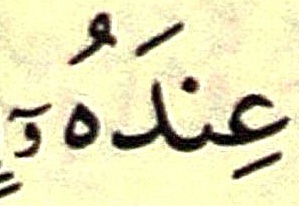 عِندَهُۥٓ